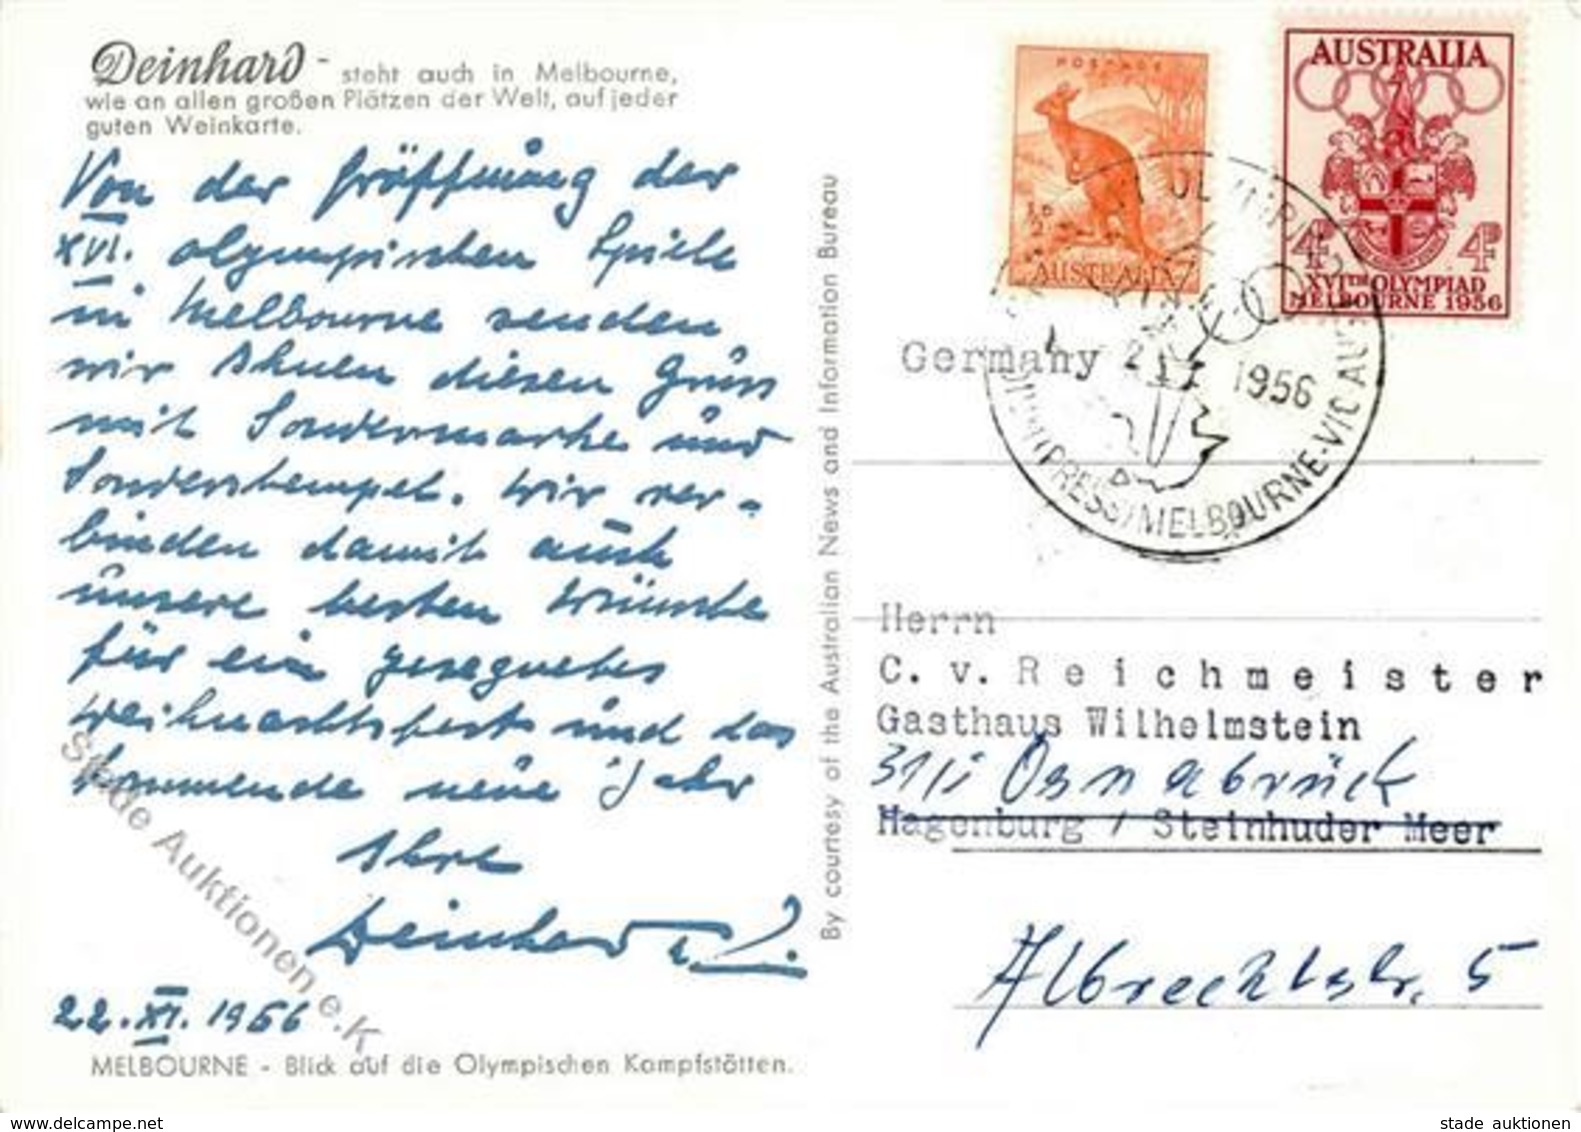 Deinhard - steht auch in Melbourne,
wie an allen großen Plätzen der Welt, auf jeder
guten Weinkarte.
Von der Eröffnung der
XVI. olympischen Spiele
in Melbourne senden
wir Ihnen diesen Gruss
mit Sondermarke und
Sonderstempel. Wir ver-
binden damit auch
unsere besten Wünsche
für ein gesegnetes
Weihnachtsfest und das
kommende neue Jahr
Ihre
Deinhard
22. XI. 1956
MELBOURNE - Blick auf die Olympischen Kampfstätten.
By courtesy of the Australian News and Information Bureau
POSTAGE
½D
AUSTRALIA
AUSTRALIA
4D 4D
XVITH OLYMPIAD
MELBOURNE 1956
1956
(PRESS) MELBOURNE-VIC AUST
Germany
Herrn
C. v. Reichmeister
Gasthaus Wilhelmstein
Osnabrück
Hagenburg / Steinhuder Meer
Albrechtstr. 5
Stade Auktionen e.K
www.delcampe.net
stade auktionen